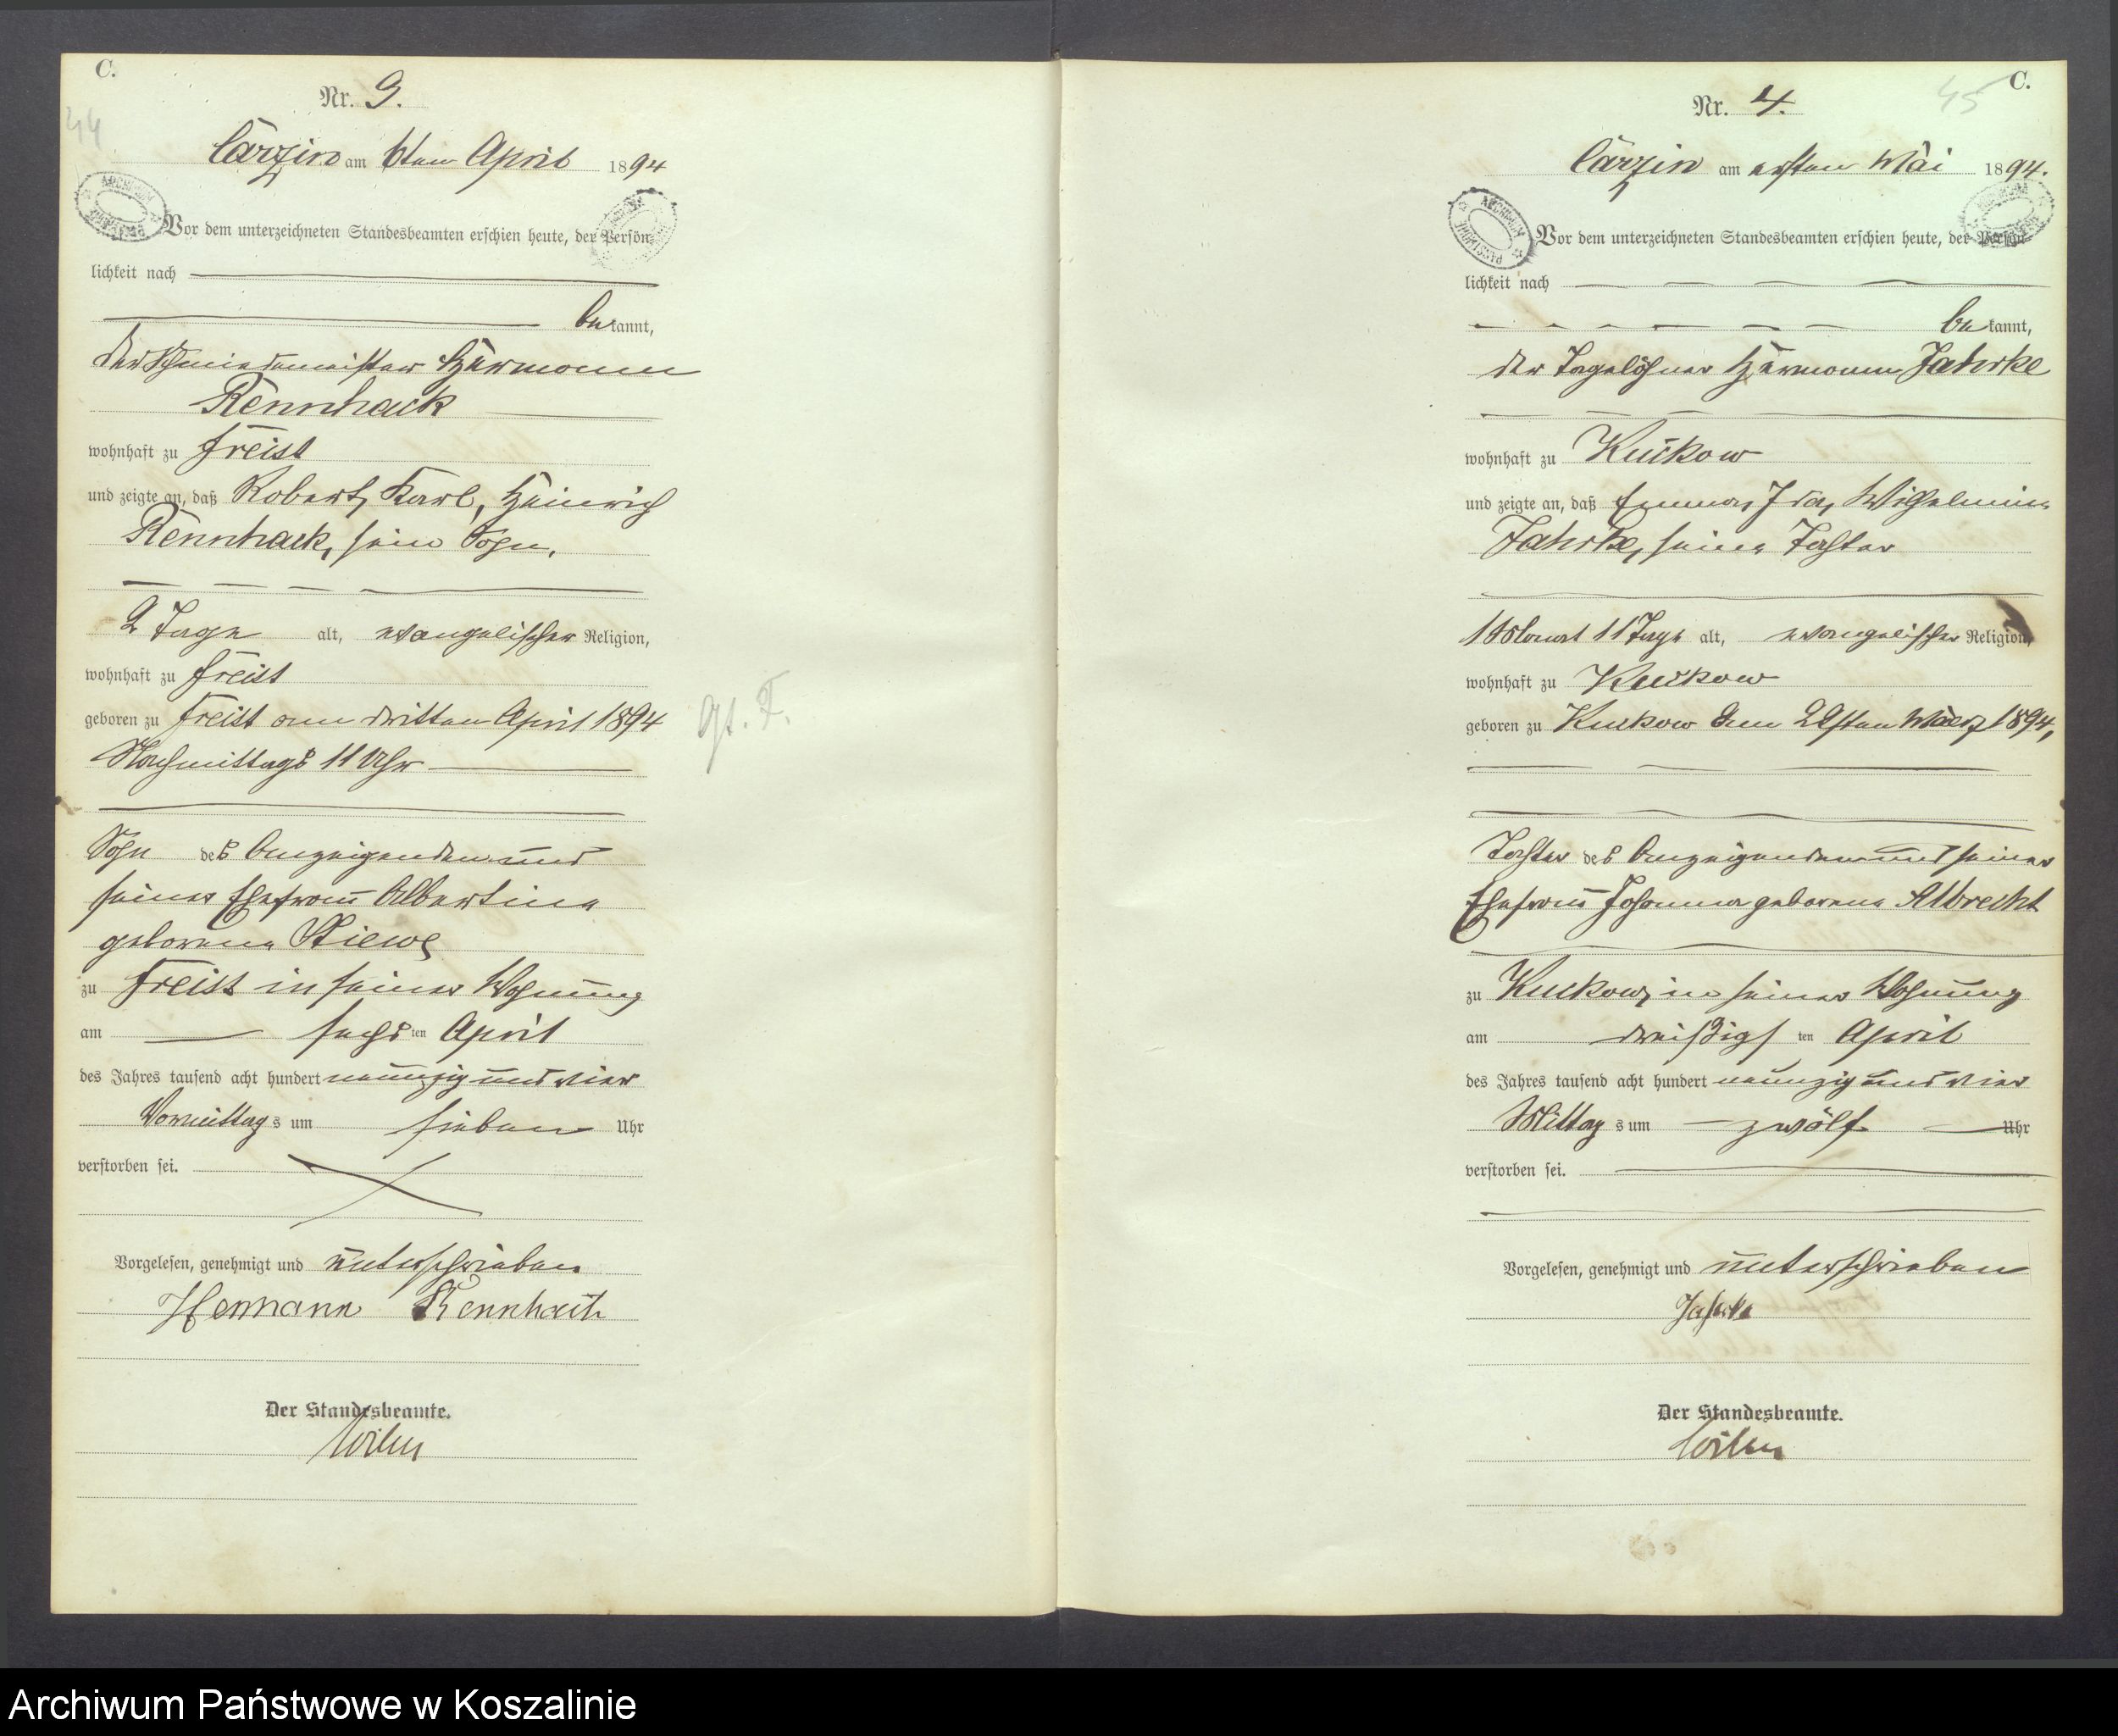 C.
44
Nr. 3.
Carzin am 6ten April 1894
Vor dem unterzeichneten Standesbeamten erschien heute, der Persön-
lichkeit nach
bekannt,
der Schmiedemeister Hermann
Rennhack
wohnhaft zu Freist
und zeigte an, daß Robert, Karl, Heinrich
Rennhack, sein Sohn,
2 Tage alt, evangelischer Religion,
wohnhaft zu Freist
geboren zu Freist am dritten April 1894
Nachmittags 11 Uhr
Sohn des Anzeigenden und
seiner Ehefrau Albertine
geborene
zu Freist in seiner Wohnung
am sechsten April
des Jahres tausend acht hundert neunzig und vier
Vormittags um sieben Uhr
verstorben sei.
Vorgelesen, genehmigt und unterschrieben
Hermann Rennhack
Der Standesbeamte.
gt. F.
C.
45
Nr. 4.
Carzin am ersten Mai 1894.
ARCHIWUM PAŃSTWOWE
Vor dem unterzeichneten Standesbeamten erschien heute, der Persön-
lichkeit nach
bekannt,
der Tagelöhner Hermann Jahrke
wohnhaft zu Kukow
und zeigte an, daß Emma, Ida, Wilhelmine
Jahrke, seine Tochter
1 Monat 11 Tage alt, evangelischer Religion,
wohnhaft zu Kukow
geboren zu Kukow den März 1894,
Tochter des Anzeigenden und seiner
Ehefrau Johanna geborene Albrecht
zu Kukow, in seiner Wohnung
am dreißigsten April
des Jahres tausend acht hundert neunzig und vier
Mittags um zwölf Uhr
verstorben sei.
Vorgelesen, genehmigt und unterschrieben
Jahrke
Der Standesbeamte.
Archiwum Państwowe w Koszalinie